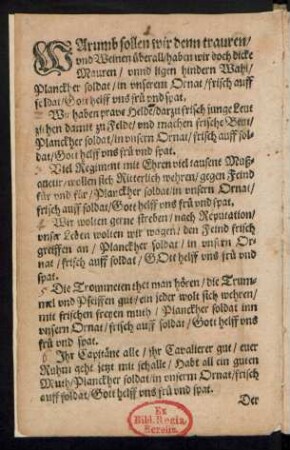 WArumb sollen wir denn trauren/
vnd Weinen überall/ haben wir doch dicke
Mauren / vnnd ligen hindern Wahl/
Planckher soldat / in vnserem Ornat / frisch auff
soldat / Gott helff vns frü vnd spat.
Wir haben prave Helde / darzu frisch junge Leut
ziehen damit zu Felde / vnd machen frische Beut/
Planckher soldat / in vnsern Ornat / frisch auff sol-
dat / Gott helff vns frü vnd spat.
Viel Regiment mit Ehren viel tausent Muß-
quetir / wollen sich Ritterlich wehren / gegen Feind
für vnd für / Planckher soldat / in vnsern Ornat/
frisch auff soldat / Gott helff vns frü vnd spat.
4 Wir wolten gerne streben / nach Reputation/
vnser Leben wolten wir wagen / den Feind frisch
greiffen an / Planckher soldat / in vnsern Or-
nat / frisch auff soldat / GOtt helff vns frü vnd
spat.
5 Die Trommeten thet man hören / die Trum-
mel vnd Pfeiffen gut / ein jeder wolt sich wehren/
mit frischen freyen muth / Planckher soldat inn
vnsern Ornat / frisch auff soldat / Gott helff vns
frü vnd spat.
6 Ihr Capitäne alle / ihr Cavalierer gut / ewer
Ruhm geht jetzt mit schalle / Habt all ein guten
Muth / Planckher soldat / in vnserm Ornat / frisch
auff soldat / Gott helff vns frü vnd spat.
Der
Ex
Bibl. Regia
Berolin.